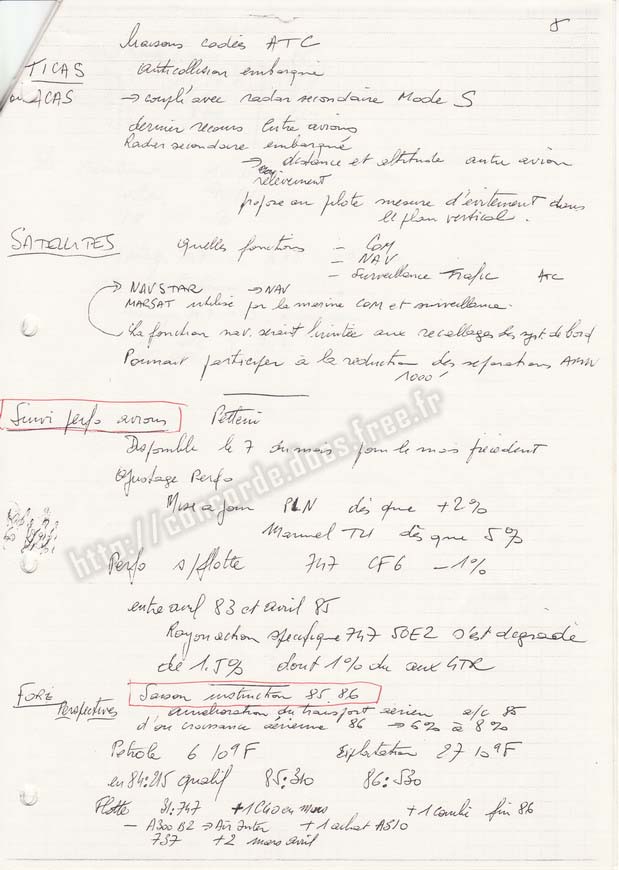 8
liaisons codés ATC
TICAS anticollision embarqué
ou ACAS → couplé avec radar secondaire Mode S
dernier recours Entre avions
Radar secondaire embarqué
→ distance et altitude autre avion
relèvement
propose au pilote mesure d'évitement dans
le plan vertical.
SATELLITES quelles fonctions - COM
- NAV
- Surveillance Trafic ATC
→ NAVSTAR → NAV
MARSAT utilisé par la marine COM et surveillance.
la fonction nav. serait limitée aux recallages des syst. de bord
Pourrait participer à la réduction des séparations
1000'
Suivi perfo avions
Disponible le 7 du mois pour le mois précédent
ajustage Perfo
Mise a jour PLN dès que +2%
Manuel TU dès que 5%
Perfo s/flotte 747 CF6 -1%
entre avril 83 et avril 85
Rayon action spécifique 747 50E2 s'est dégradé
de 1.5% dont 1% du aux GTR
FORE Saison instruction 85 86
Perspectives amélioration du transport aérien a/c 85
d'ou croissance aérienne 86 → 6% à 8%
Petrole 6 10⁹F Exploitation 27 10⁹F
en 84:215 qualif 85:310 86:530
Flotte 31:747 +1 en mars +1 combi fin 86
- A300 B2 → Air Inter + 1 achat A310
737 +2 mars avril
http://concorde.docs.free.fr